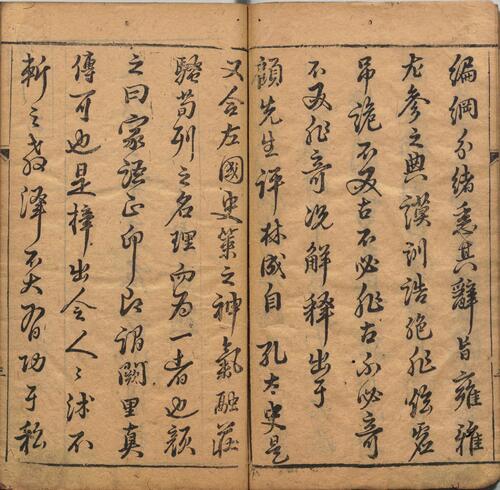 編綱分緒悉其辭旨雍雅
左參之典謨訓誥絶非恠宕
吊詭不又古不必非古不必奇
不又非奇况解釋出于
顧先生評林成自孔太史是
又合左國史策之神氣融莊
騷荀列之名理而為一者也顏
之曰家語正印即謂闕里真
傳可也是梓出令人人沭不
斬之教澤不大有功于